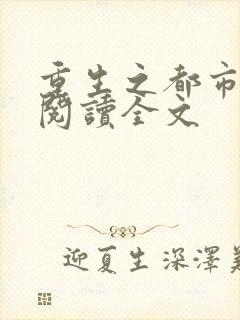 重生之都市
閱讀全文
迎夏生深澤